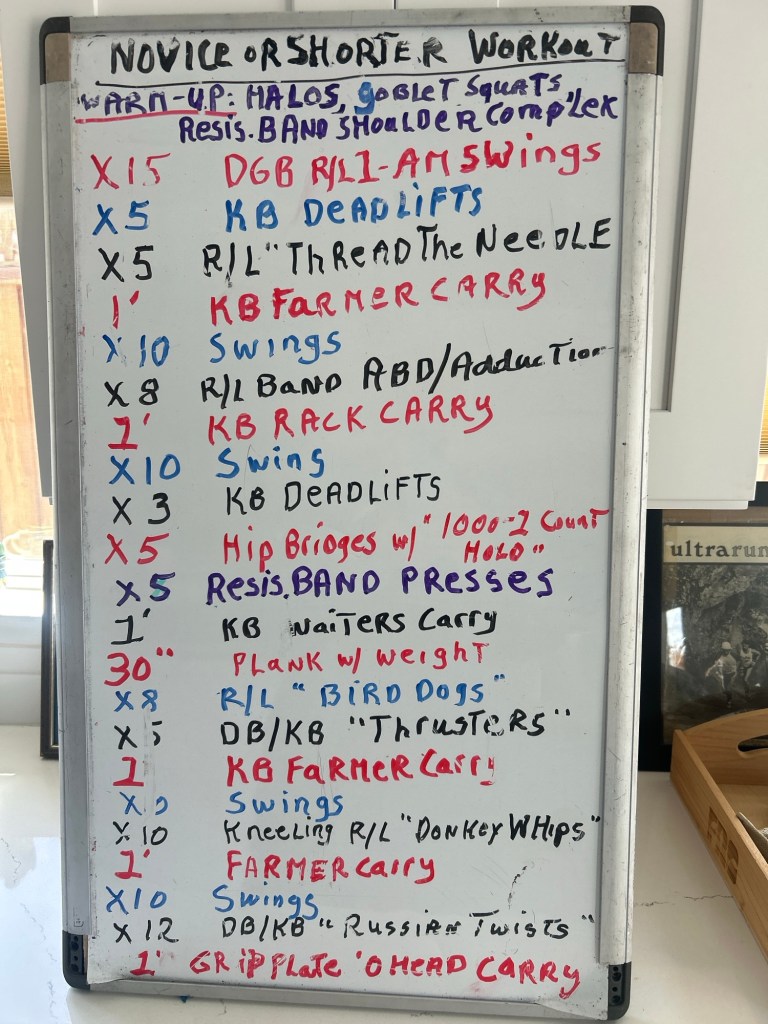 NOVICE OR SHORTER WORKOUT
WARM-UP: HALOS, GOBLET SQUATS,
RESIS. BAND SHOULDER COMPLEX
X15 DGB R/L 1-AM SWINGS
X5 KB DEADLIFTS
X5 R/L "THREAD THE NEEDLE
1' KB FARMER CARRY
X10 SWINGS
X8 R/L BAND ABD/Adduction
1' KB RACK CARRY
X10 SWING
X3 KB DEADLIFTS
X5 Hip Bridges w/ "1000-1 Count
HOLD"
X5 Resis. BAND PRESSES
1' KB WAITERS CARRY
30" PLANK w/ weight
X8 R/L "BIRD DOGS"
X5 DB/KB "THRUSTERS"
1 KB FARMER Carry
SWINGS
X10 Kneeling R/L "DONKEY WHIPS"
1' FARMER carry
X10 Swings
X12 DB/KB "Russian Twists"
1' GRIP PLATE 'O HEAD CARRY
ultrarun